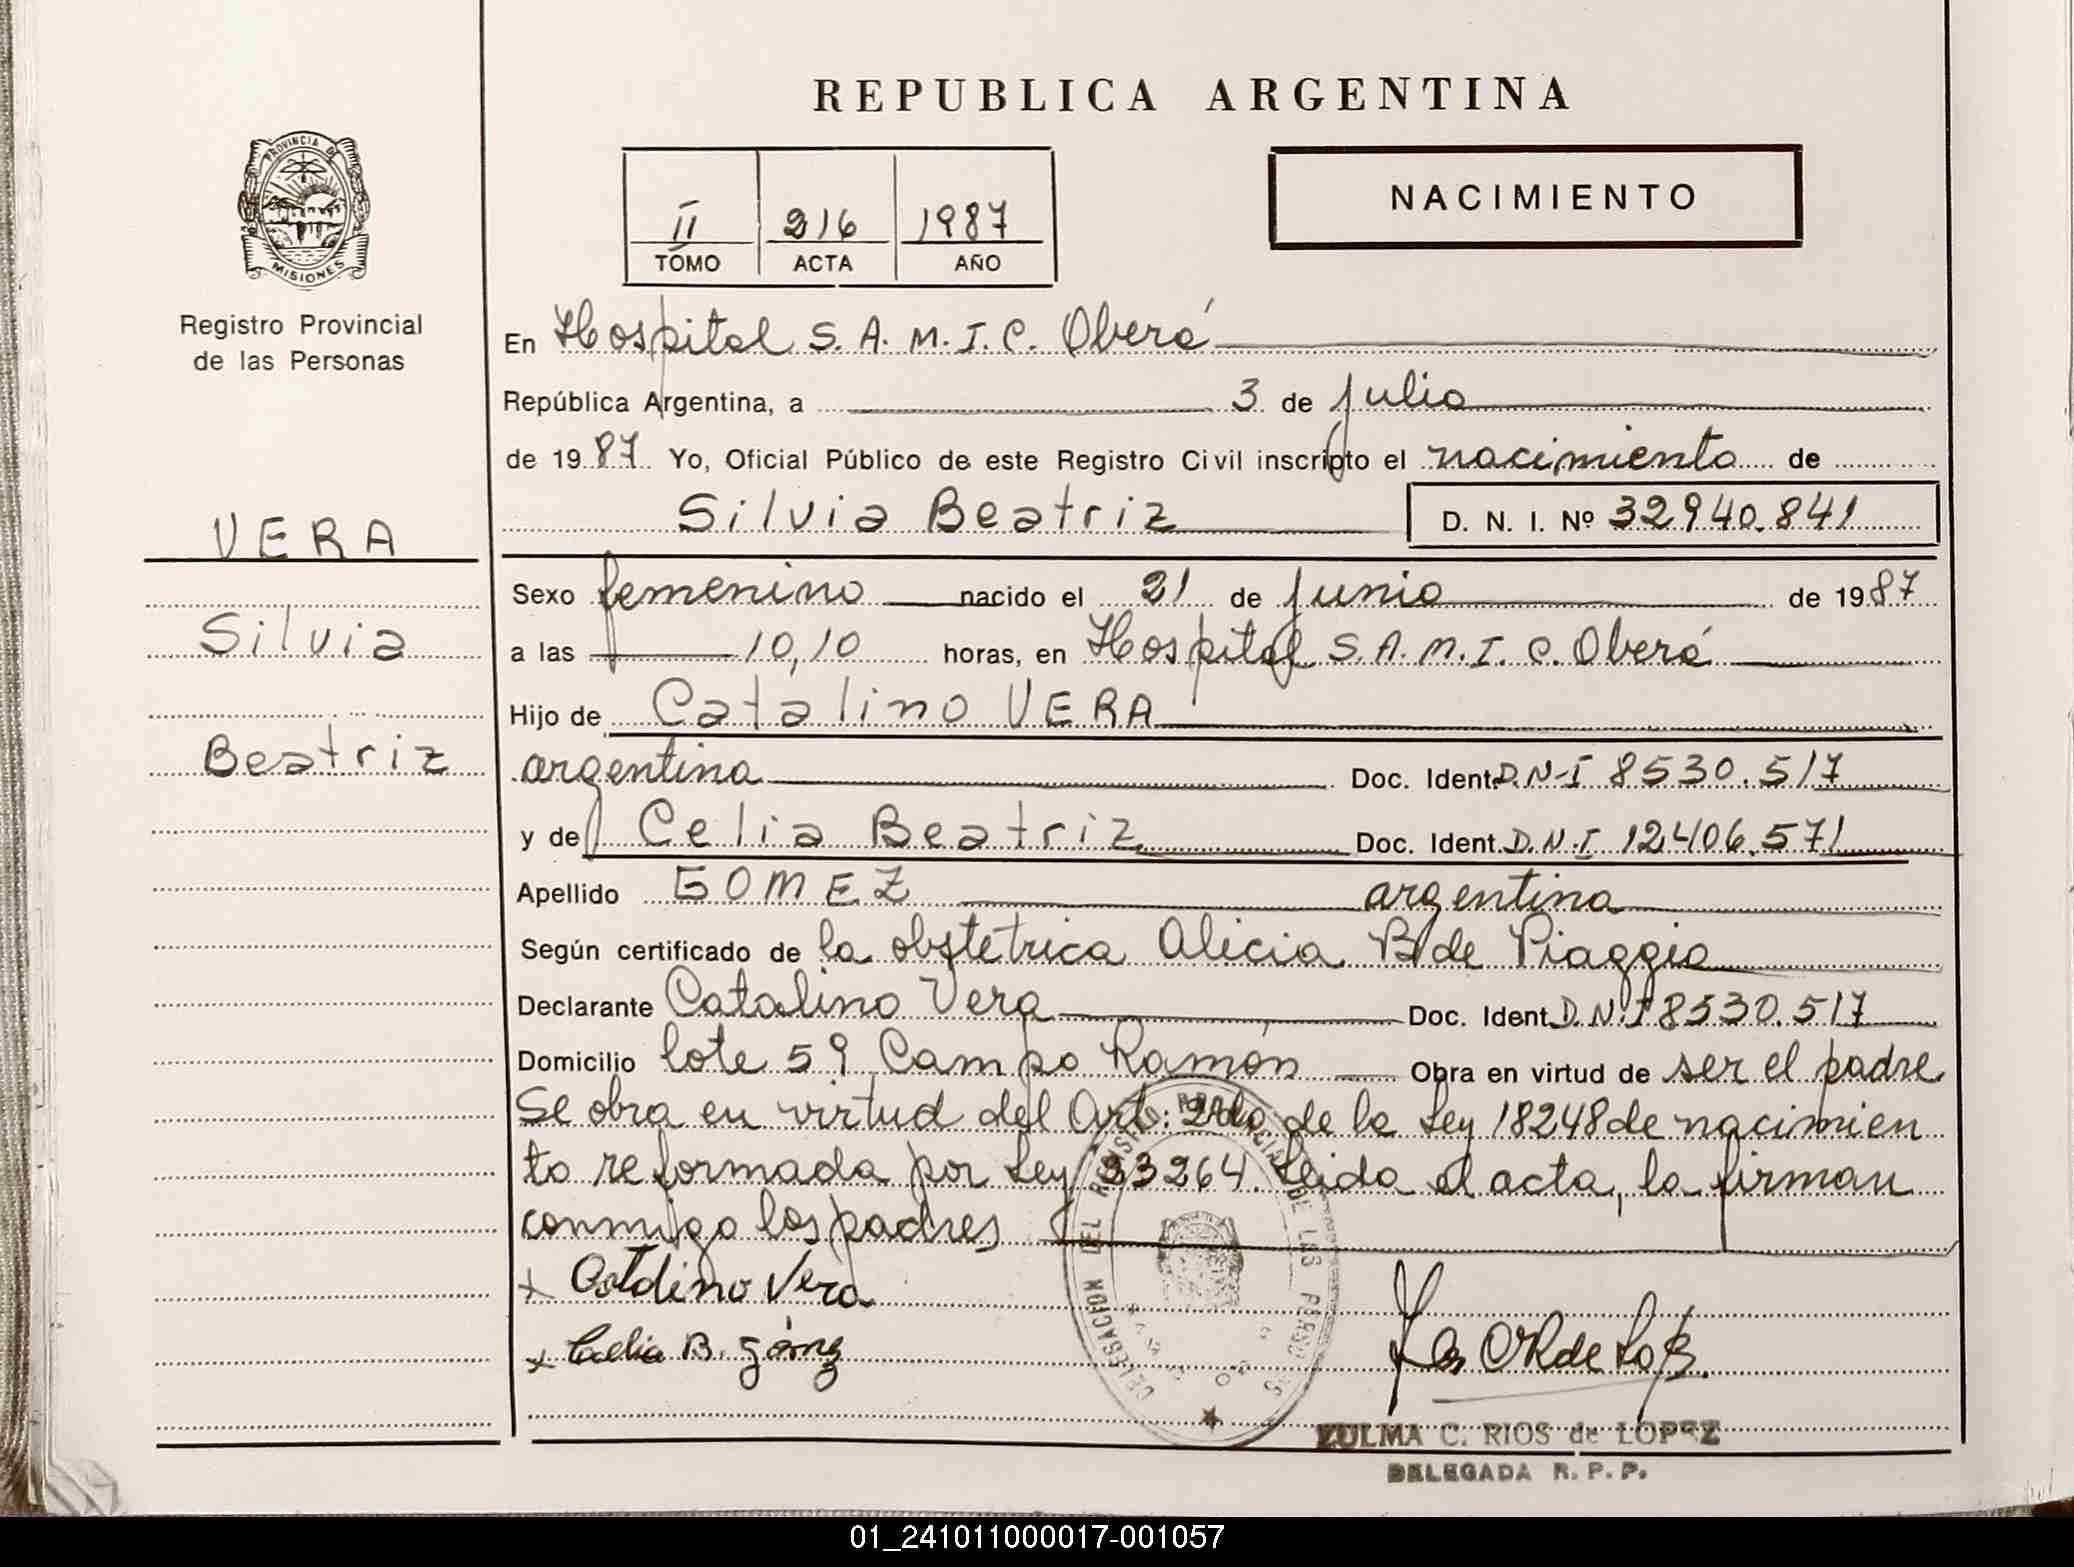 REPUBLICA ARGENTINA
PROVINCIA DE
MISIONES
Registro Provincial
de las Personas
II 216 1987
TOMO ACTA AÑO
NACIMIENTO
En Hospital S. A. M. I. C. Oberá
República Argentina, a 3 de julio
de 1987 Yo, Oficial Público de este Registro Civil inscripto el nacimiento de
Silvia Beatriz D. N. I. Nº 32940.841
VERA
Silvia
Beatriz
Sexo femenino nacido el 21 de junio de 1987
a las 10,10 horas, en Hospital S. A. M. I. C. Oberá
Hijo de Catalino VERA
argentina Doc. Ident. D.N.I 8530.517
y de Celia Beatriz Doc. Ident. D.N.I 12406.571
Apellido GOMEZ argentina
Según certificado de la obstetrica Alicia B de Piaggio
Declarante Catalino Vera Doc. Ident. D.N.I 8530.517
Domicilio lote 59 Campo Ramón Obra en virtud de ser el padre
Se obra en virtud del Art: 2do de la Ley 18248 de nacimien
to reformada por Ley 23264. Leida el acta, la firman
conmigo los padres
x Catalino Vera
x Celia B. Gómez
DELEGACION DEL REGISTRO PROVINCIAL DE LAS PERSONAS
ZULMA C. RIOS de LOPEZ
DELEGADA R. P. P.
01_241011000017-001057